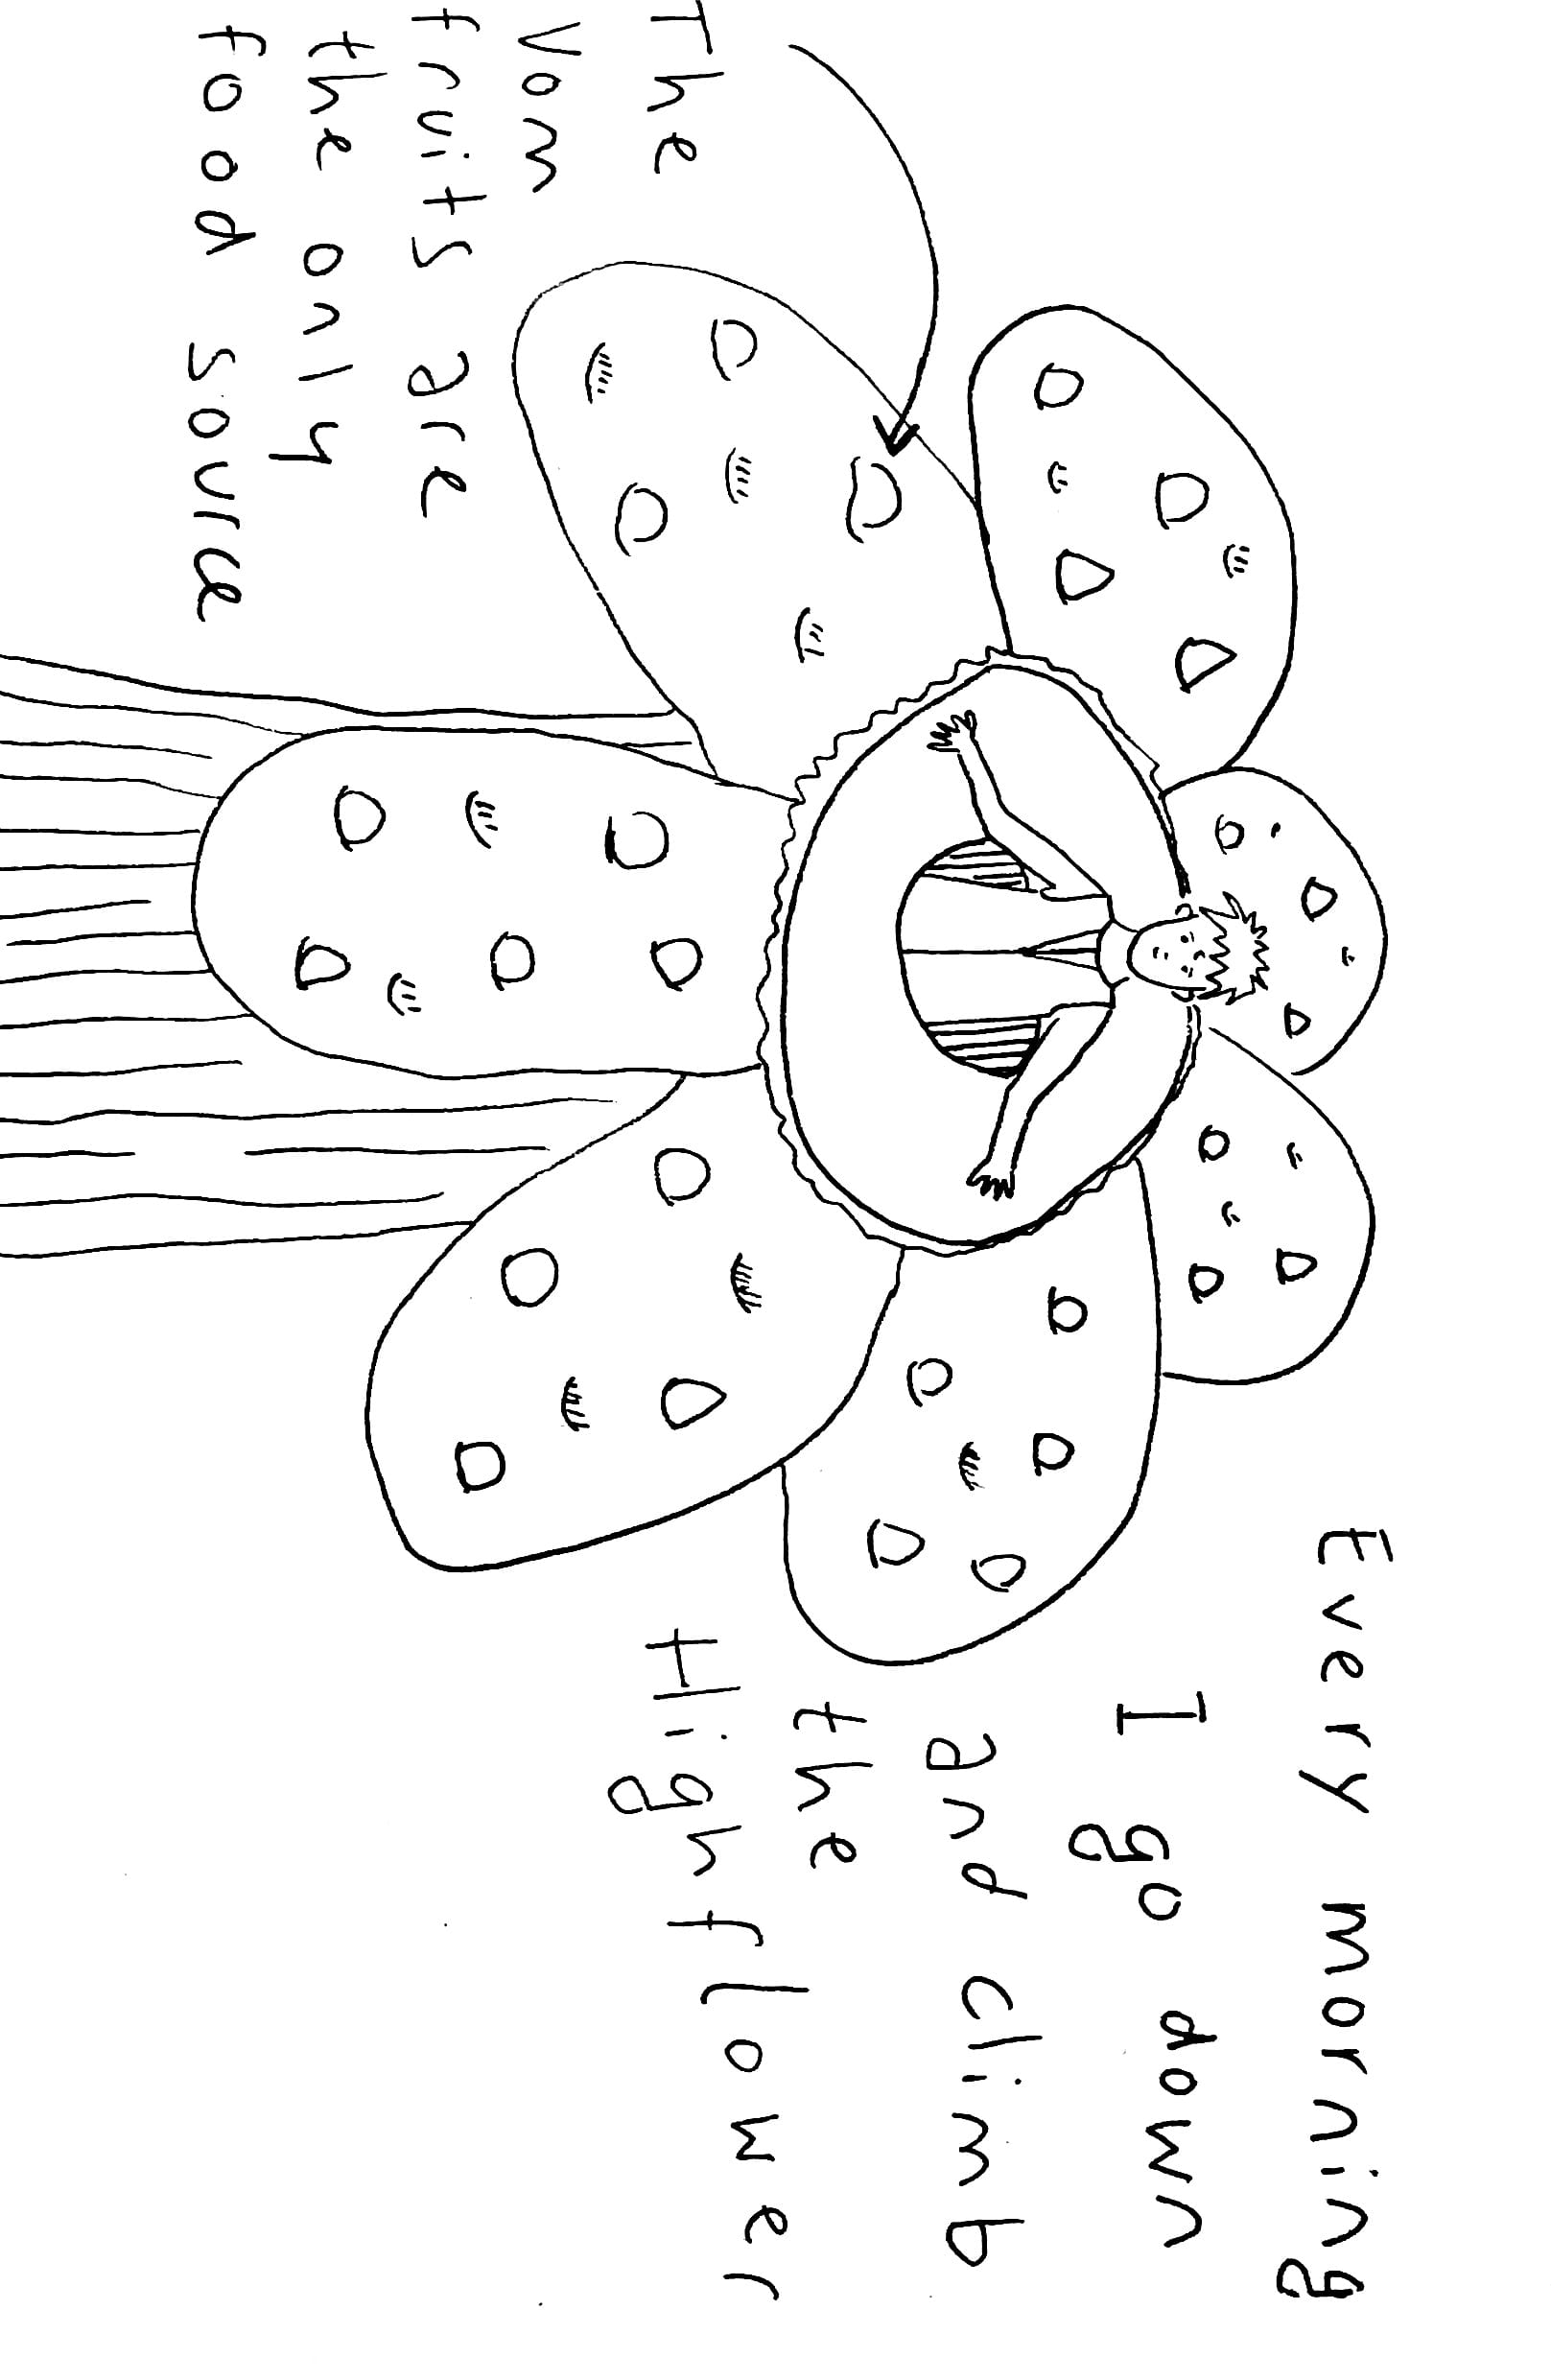 Every morning
I go down
and climb
the
Highflower
The
Vom
fruits are
the only
food source